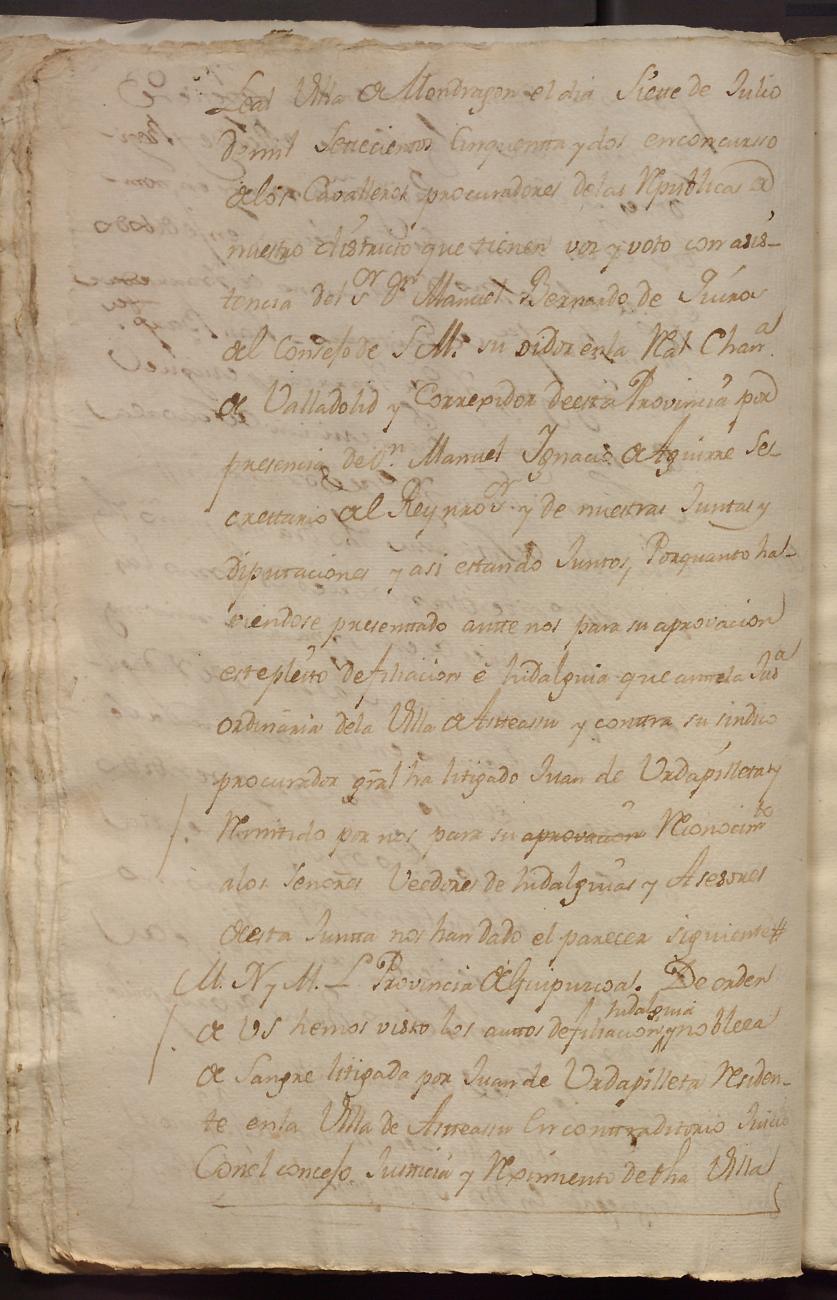 Leal Villa de Mondragon el dia Siette de Julio
de mil Settecientos Cinquentta y dos en concursso
de los Cavalleros procuradores de las Republicas de
nuestro districtto que tienen voz y voto con asis-
tencia del Sor Dn Manuel Bernardo de Quiros
del Consejo de S. M. su oidor en la Ral Chanª.
de Valladolid y Correxidor de esta Provincia por
presencia de Dn. Manuel Ygnacio de Aguirre Se-
crettario del Rey nro Sor y de nuestras Juntas y
Diputaciones y asi estando Juntos, Porquanto ha-
viendose presenttado antte nos para su aprovacion
este pleito de filiacion é hidalguia que antte la Jusª
ordinaria dela Villa de Astteassu y conttra su sindico
procurador gral ha litigado Juan de Urdapilleta y
Remitido por nos para su aprovacion Reconocimto
alos Señores Veedores de hidalguias y Asesores
de esta Juntta nos han dado el parecer siguiente #
M. N. y M. L. Provincia de Guipuzcoa. De orden
de VS hemos visto los auttos de filiacion, hidalguia y nobleza
de Sangre litigada por Juan de Urdapilleta Residen-
te en la Villa de Astteassu En conttradittorio Juicio
Con el concejo Justticia y Reximiento de dha Villa